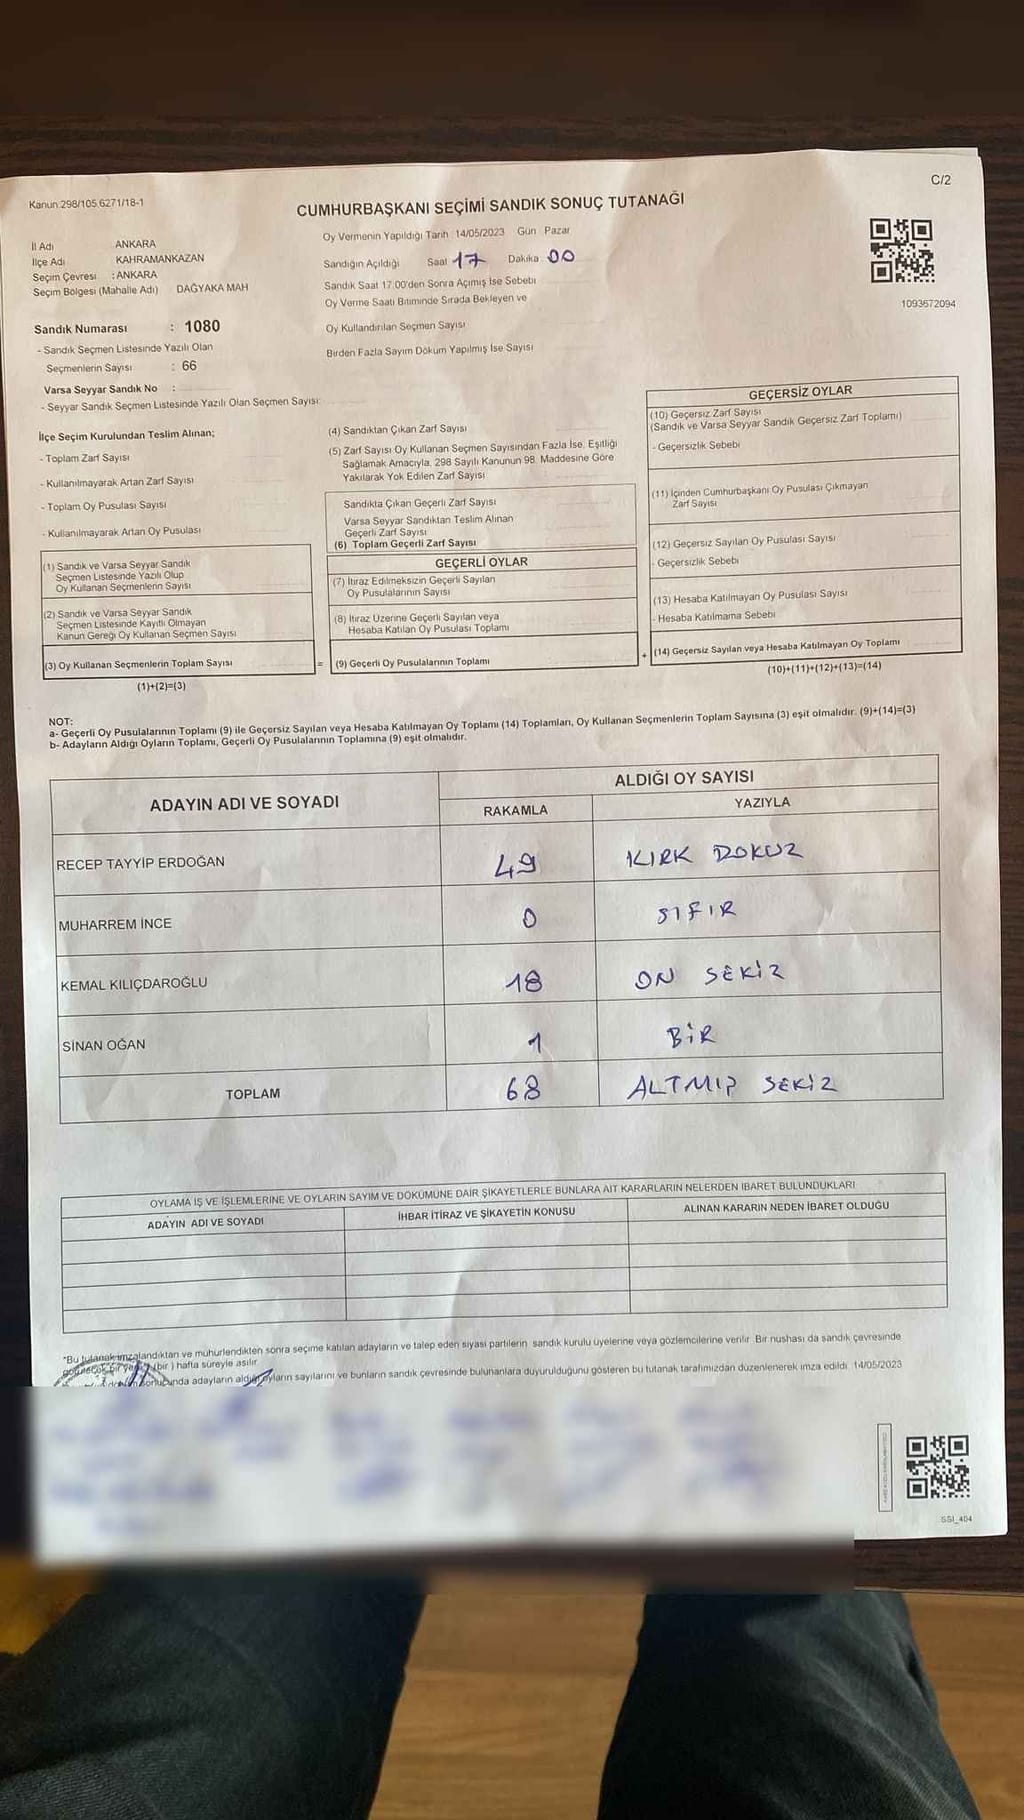 C/2
Kanun.298/105.6271/18-1
CUMHURBAŞKANI SEÇİMİ SANDIK SONUÇ TUTANAĞI
İl Adı ANKARA
İlçe Adı KAHRAMANKAZAN
Seçim Çevresi : ANKARA
Seçim Bölgesi (Mahalle Adı) DAĞYAKA MAH
Oy Vermenin Yapıldığı Tarih 14/05/2023 Gün Pazar
Sandığın Açıldığı Saat 17 Dakika 00
Sandık Saat 17.00'den Sonra Açımış İse Sebebi
Oy Verme Saati Bitiminde Sırada Bekleyen ve
Oy Kullandırılan Seçmen Sayısı
Birden Fazla Sayım Döküm Yapılmış İse Sayısı
1093672094
Sandık Numarası : 1080
- Sandık Seçmen Listesinde Yazılı Olan
Seçmenlerin Sayısı : 66
Varsa Seyyar Sandık No :
- Seyyar Sandık Seçmen Listesinde Yazılı Olan Seçmen Sayısı:
İlçe Seçim Kurulundan Teslim Alınan;
- Toplam Zarf Sayısı
- Kullanılmayarak Artan Zarf Sayısı
- Toplam Oy Pusulası Sayısı
- Kullanılmayarak Artan Oy Pusulası
(1) Sandık ve Varsa Seyyar Sandık
Seçmen Listesinde Yazılı Olup
Oy Kullanan Seçmenlerin Sayısı
(2) Sandık ve Varsa Seyyar Sandık
Seçmen Listesinde Kayıtlı Olmayan
Kanun Gereği Oy Kullanan Seçmen Sayısı
(3) Oy Kullanan Seçmenlerin Toplam Sayısı
(1)+(2)=(3)
(4) Sandıktan Çıkan Zarf Sayısı
(5) Zarf Sayısı Oy Kullanan Seçmen Sayısından Fazla İse, Eşitliği
Sağlamak Amacıyla, 298 Sayılı Kanunun 98. Maddesine Göre
Yakılarak Yok Edilen Zarf Sayısı
Sandıkta Çıkan Geçerli Zarf Sayısı
Varsa Seyyar Sandıktan Teslim Alınan
Geçerli Zarf Sayısı
(6) Toplam Geçerli Zarf Sayısı
GEÇERLİ OYLAR
(7) İtiraz Edilmeksizin Geçerli Sayılan
Oy Pusulalarının Sayısı
(8) İtiraz Üzerine Geçerli Sayılan veya
Hesaba Katılan Oy Pusulası Toplamı
= (9) Geçerli Oy Pusulalarının Toplamı
GEÇERSİZ OYLAR
(10) Geçersiz Zarf Sayısı
(Sandık ve Varsa Seyyar Sandık Geçersiz Zarf Toplamı)
- Geçersizlik Sebebi
(11) İçinden Cumhurbaşkanı Oy Pusulası Çıkmayan
Zarf Sayısı
(12) Geçersiz Sayılan Oy Pusulası Sayısı
- Geçersizlik Sebebi
(13) Hesaba Katılmayan Oy Pusulası Sayısı
- Hesaba Katılmama Sebebi
+ (14) Geçersiz Sayılan veya Hesaba Katılmayan Oy Toplamı
(10)+(11)+(12)+(13)=(14)
NOT:
a- Geçerli Oy Pusulalarının Toplamı (9) ile Geçersiz Sayılan veya Hesaba Katılmayan Oy Toplamı (14) Toplamları, Oy Kullanan Seçmenlerin Toplam Sayısına (3) eşit olmalıdır. (9)+(14)=(3)
b- Adayların Aldığı Oyların Toplamı, Geçerli Oy Pusulalarının Toplamına (9) eşit olmalıdır.
ADAYIN ADI VE SOYADI ALDIĞI OY SAYISI
RAKAMLA YAZIYLA
RECEP TAYYİP ERDOĞAN 49 KIRK DOKUZ
MUHARREM İNCE 0 SIFIR
KEMAL KILIÇDAROĞLU 18 ON SEKİZ
SİNAN OĞAN 1 BİR
TOPLAM 68 ALTMIŞ SEKİZ
OYLAMA İŞ VE İŞLEMLERİNE VE OYLARIN SAYIM VE DÖKÜMÜNE DAİR ŞİKAYETLERLE BUNLARA AİT KARARLARIN NELERDEN İBARET BULUNDUKLARI
ADAYIN ADI VE SOYADI İHBAR İTİRAZ VE ŞİKAYETİN KONUSU ALINAN KARARIN NEDEN İBARET OLDUĞU
*Bu tutanak imzalandıktan ve mühürlendikten sonra seçime katılan adayların ve talep eden siyasi partilerin sandık kurulu üyelerine veya gözlemcilerine verilir. Bir nüshası da sandık çevresinde
(bir) hafta süreyle asılır.
sonucunda adayların aldığı oyların sayılarını ve bunların sandık çevresinde bulunanlara duyurulduğunu gösteren bu tutanak tarafımızdan düzenlenerek imza edildi. 14/05/2023
SSI_404